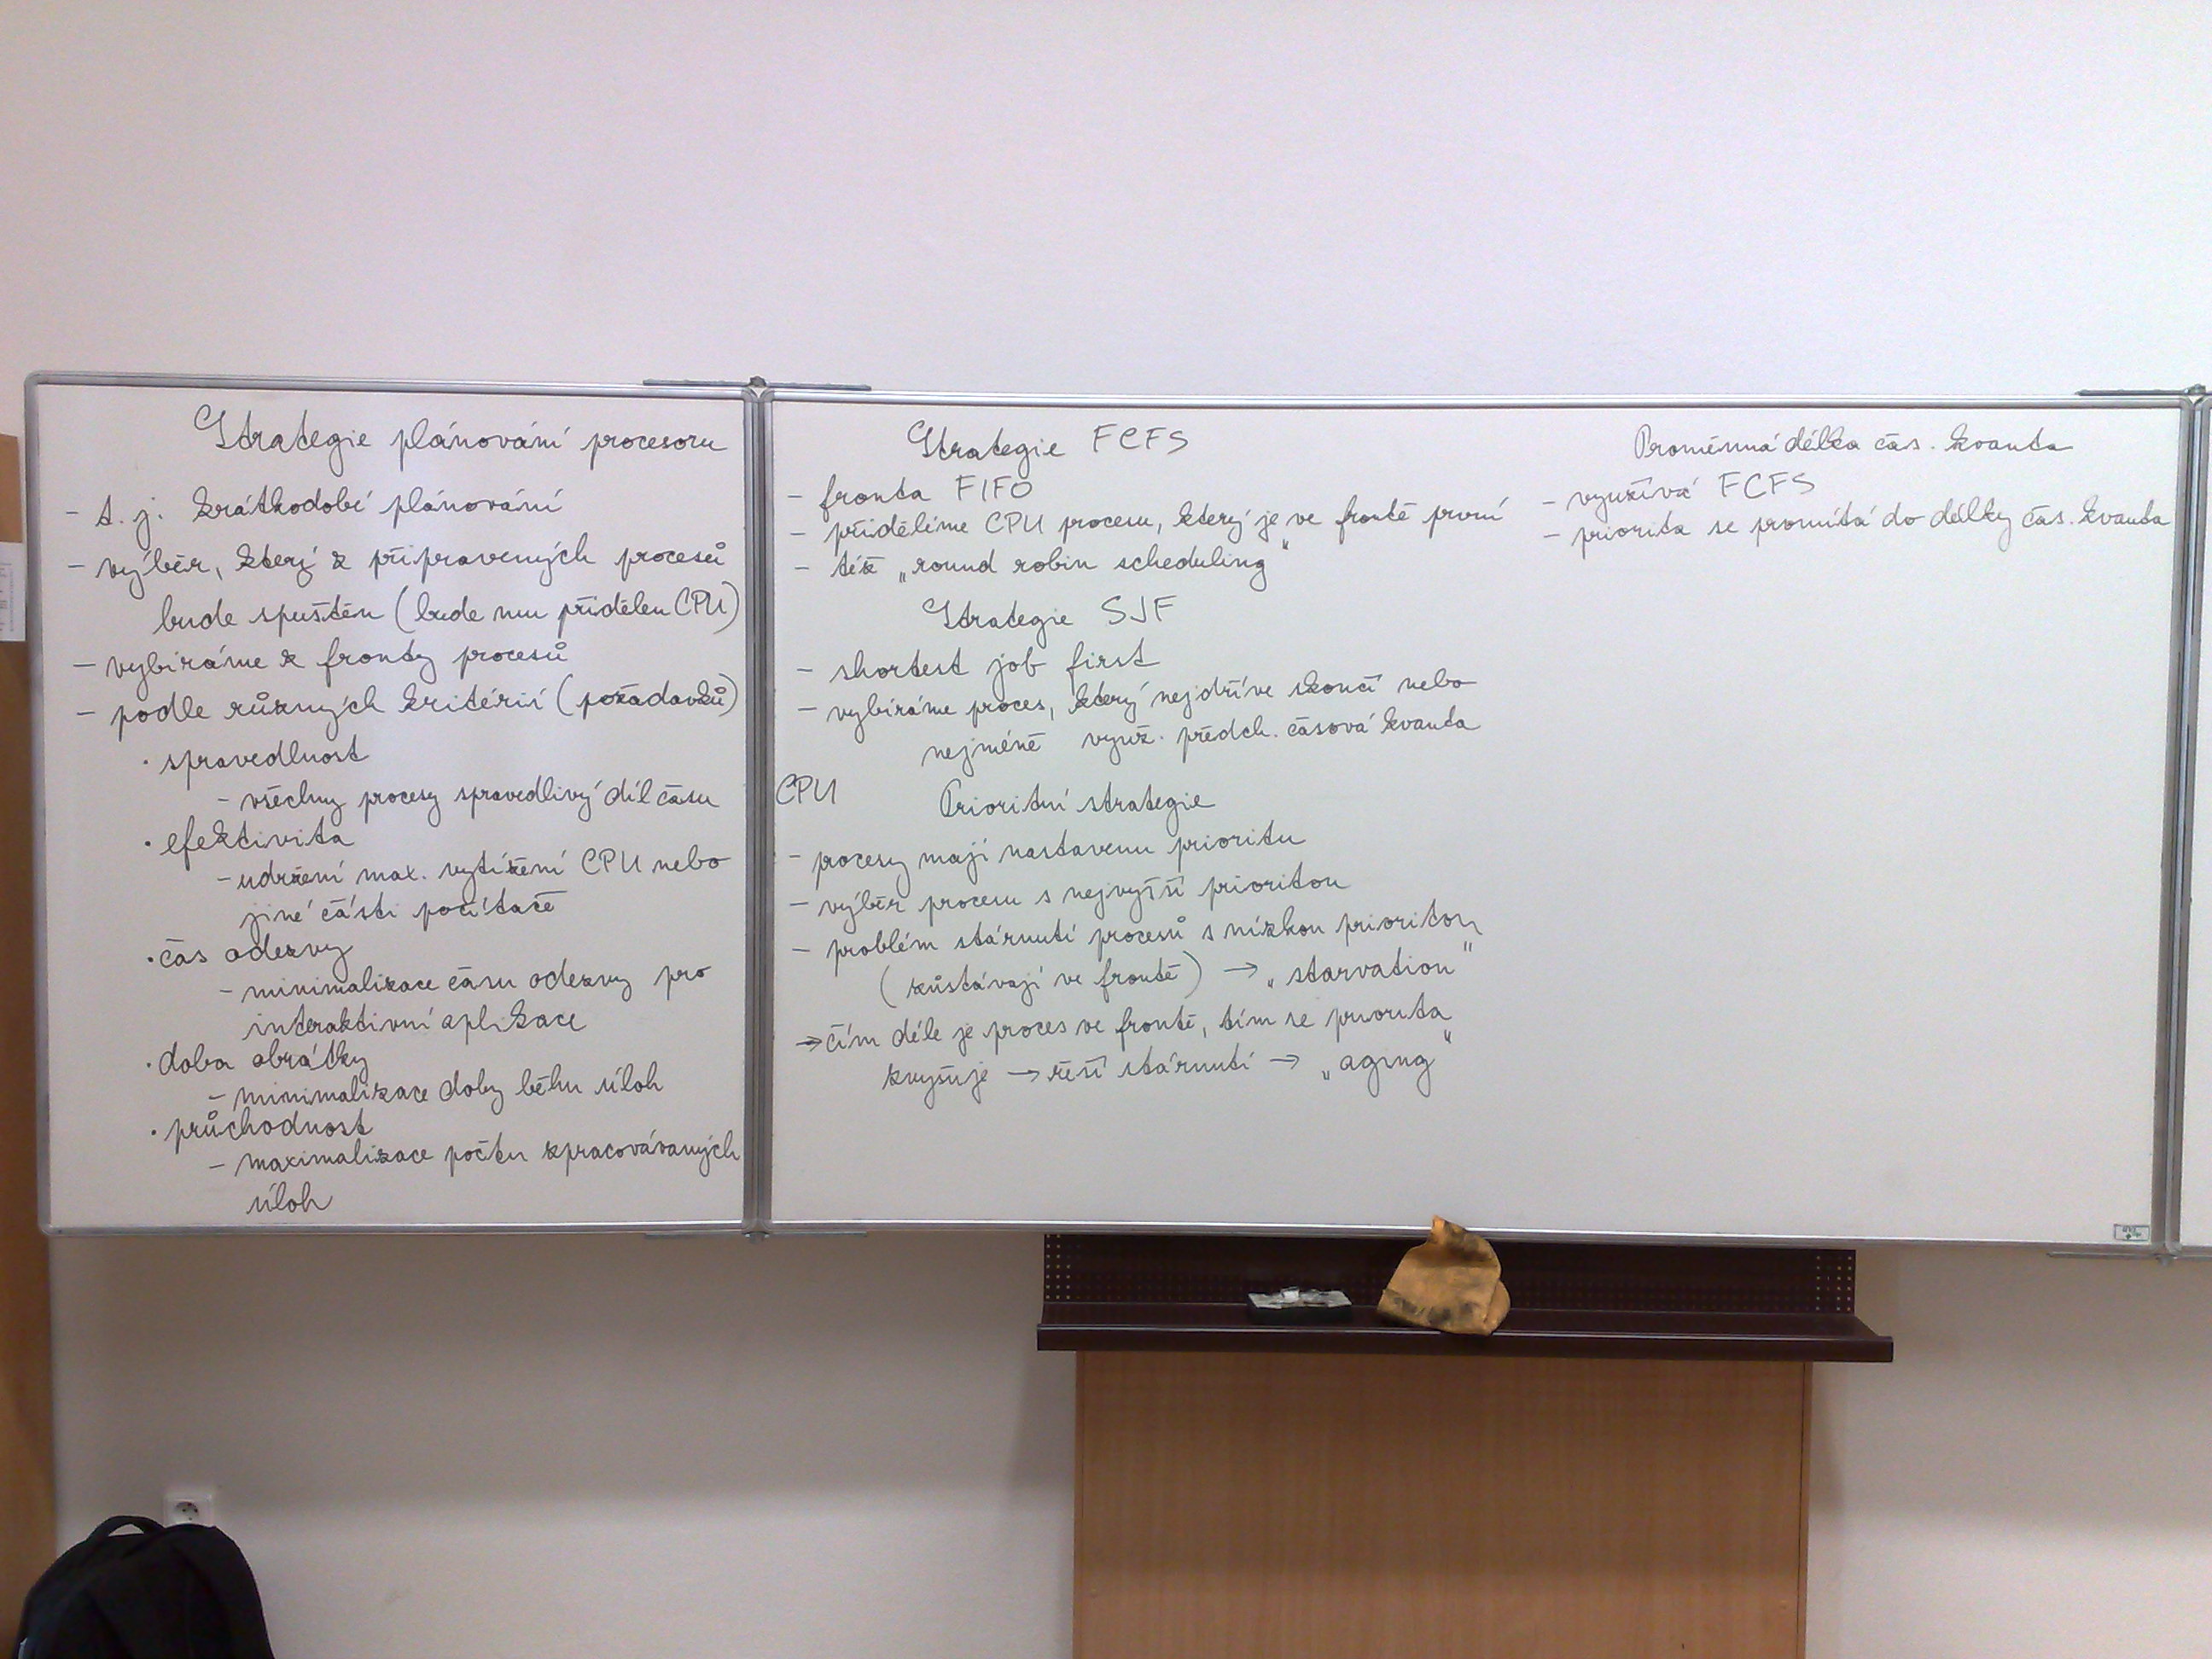 Strategie plánování procesoru
- t. j. krátkodobé plánování
- výběr, který z připravených procesů
bude spuštěn (bude mu přidělen CPU)
- vybíráme z fronty procesů
- podle různých kritérií (požadavků)
· spravedlnost
- všechny procesy spravedlivý díl času CPU
· efektivita
- udržení max. vytížení CPU nebo
jiné části počítače
· čas odezvy
- minimalizace času odezvy pro
interaktivní aplikace
· doba obrátky
- minimalizace doby běhu úloh
· průchodnost
- maximalizace počtu zpracovávaných
úloh
Strategie FCFS
- fronta FIFO
- přidělíme CPU procesu, který je ve frontě první
- též „round robin scheduling“
Strategie SJF
- shortest job first
- vybíráme proces, který nejdříve skončí nebo
nejméně využ. předch. časová kvanta
Prioritní strategie
- procesy mají nastavenu prioritu
- výběr procesu s nejvyšší prioritou
- problém stárnutí procesů s nízkou prioritou
(zůstávají ve frontě) → „starvation“
→ čím déle je proces ve frontě, tím se priorita
zvyšuje → řeší stárnutí → „aging“
Proměnná délka čas. kvanta
- využívá FCFS
- priorita se promítá do délky čas. kvanta